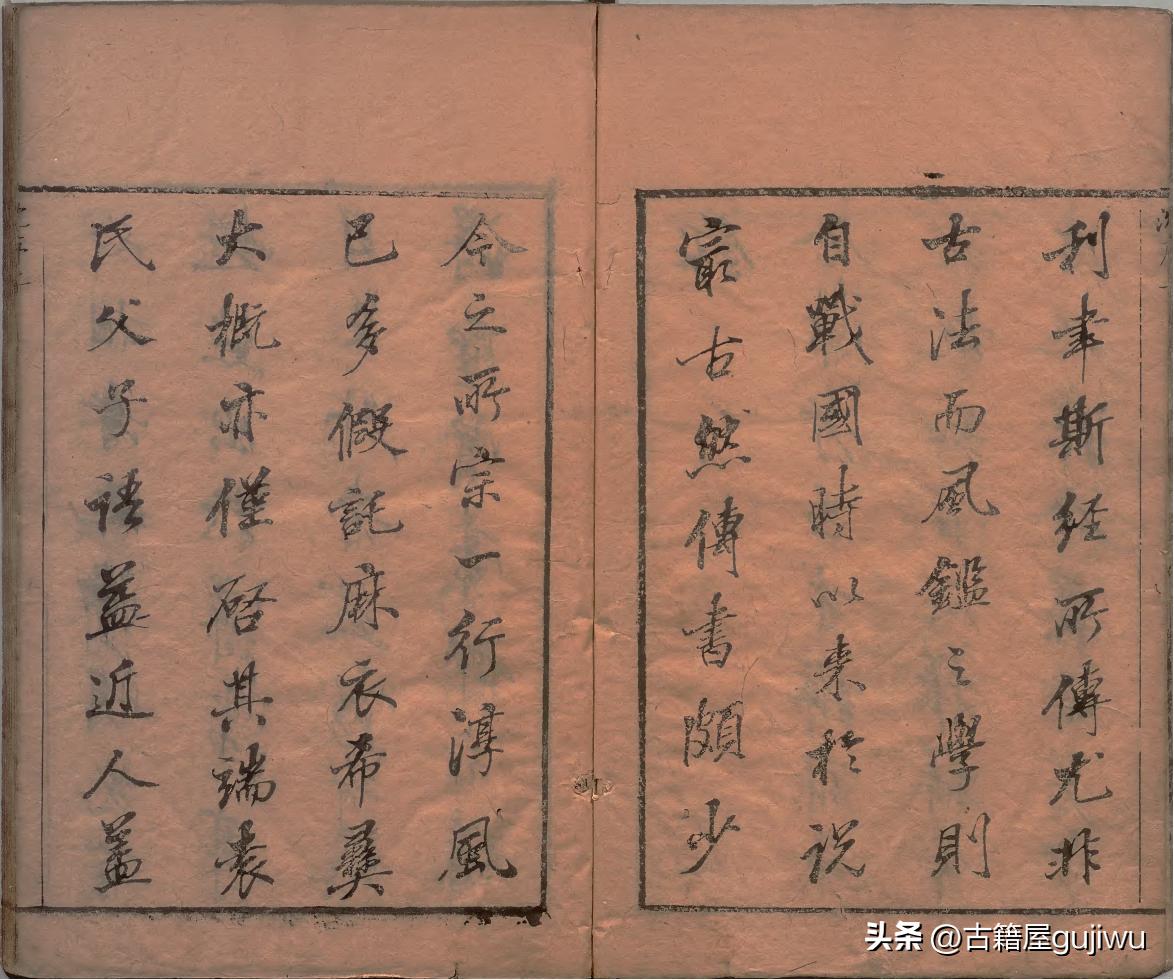 利聿斯經所傳尤非
古法而風鑑之學則
自戰國時以来於説
㝡古然傳書頗少
今之所宗一行淳風
已多假託麻衣希彛
大概亦僅啓其端袁
氏父子語益近人益
头条 @古籍屋gujiwu